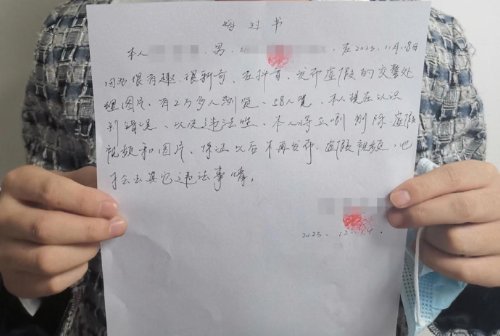 悔过书
本人 男, 在2023,11月18日
因为很有趣、很新奇、在抖音、发布虚假的交警处
理图片,有2万多人浏览、58人赞、本人现在认识
到错误、以及违法性、本人将立刻删除虚假
视频和图片、保证以后不再发布、虚假视频,也
不会去其它违法事情。
2023.